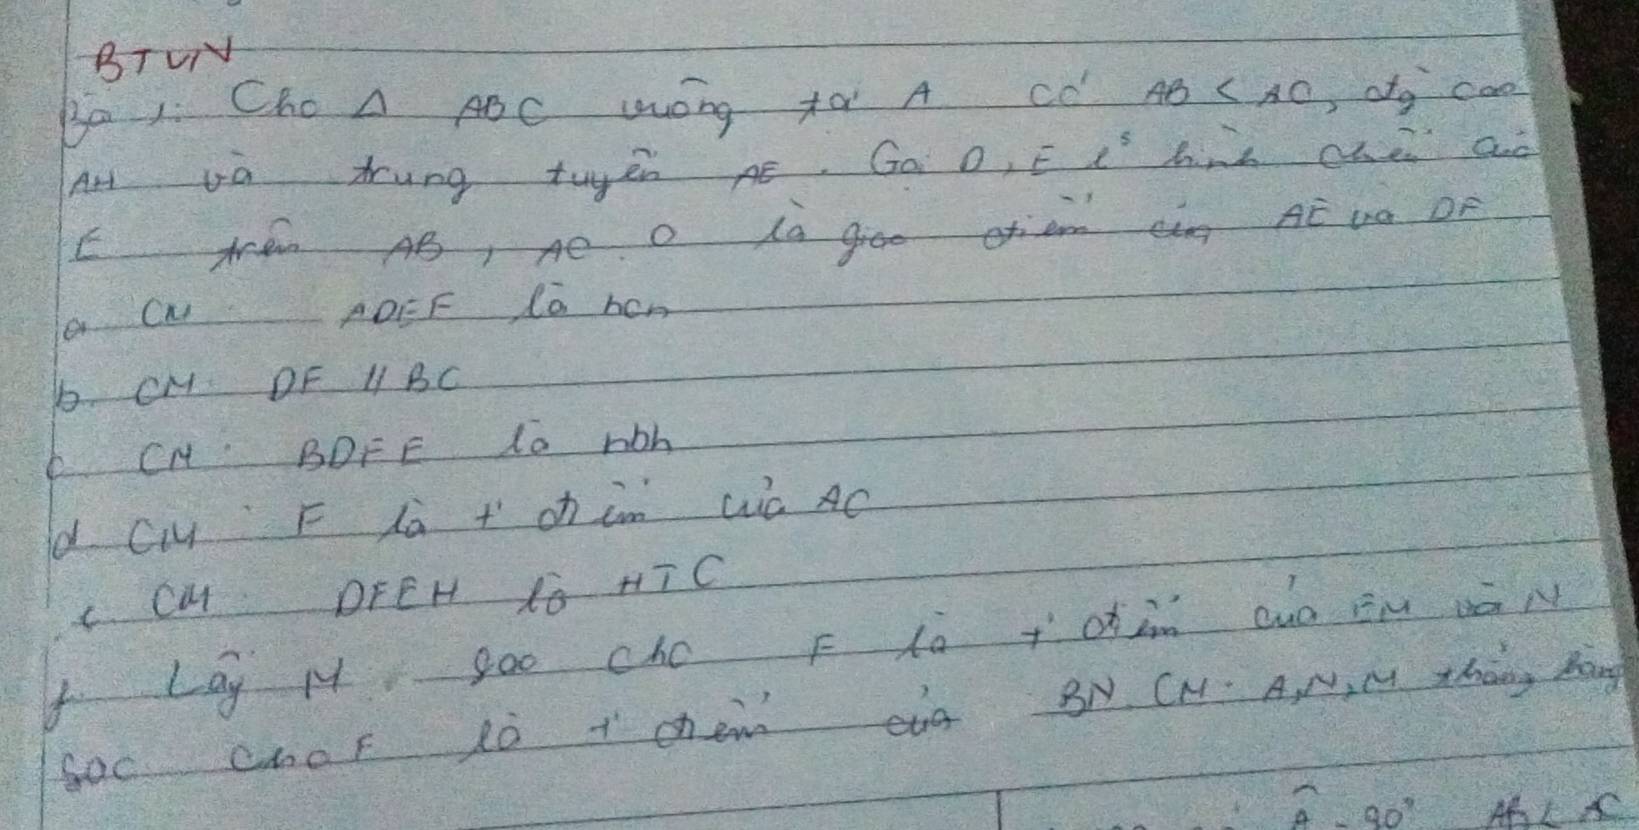 BTVN
Bà 1: Cho Δ ABC vuông tại A có AB < AC, đg cao
AH và trung tuyến AE. Gọi D, E l's hình chiếu của
E trên AB, AC. O là giao điểm của AE và DF
a CM ADEF là hcn
b. CM. DF // BC
c CM: BDFE là hbh
d CM: F là t' điểm của AC
CM DFEH là HTC
f Lấy M sao cho F là t' điểm của EM và N
sao cho F là t' điểm của BN. CM: A, N, M thẳng hàng
A = 90° AB < AC